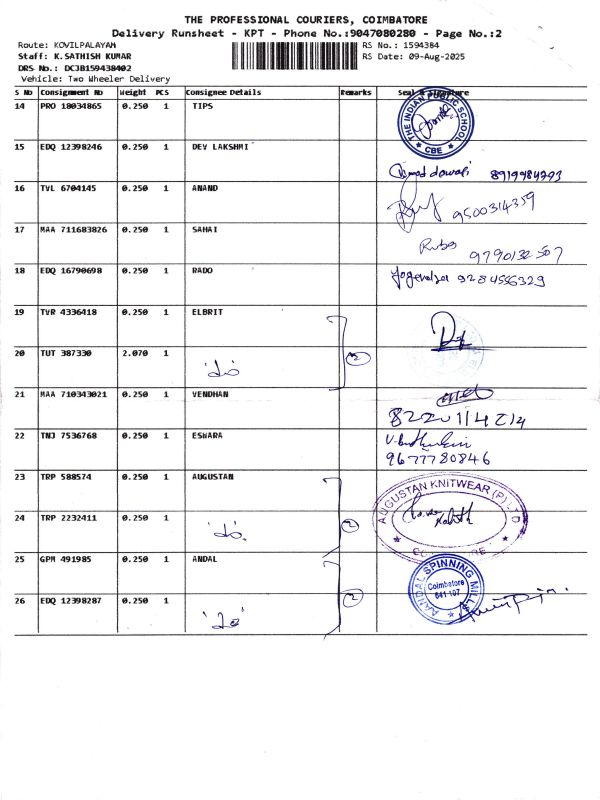 THE PROFESSIONAL COURIERS, COIMBATORE
Delivery Runsheet - KPT - Phone No.:9047080280 - Page No.:2
Route: KOVILPALAYAM
RS No.: 1594384
Staff: K.SATHISH KUMAR
RS Date: 09-Aug-2025
DRS No.: DCJB159438402
Vehicle: Two Wheeler Delivery
S No Consignment No Weight PCS Consignee Details Remarks Seal & Signature
14 PRO 18034865 0.250 1 TIPS
THE INDIAN PUBLIC SCHOOL
CBE
15 EDQ 12398246 0.250 1 DEV LAKSHMI
16 TVL 6704145 0.250 1 ANAND
9500314359
17 MAA 711683826 0.250 1 SAHAI
18 EDQ 16790698 0.250 1 RADO
9284556329
19 TVR 4336418 0.250 1 ELBRIT
20 TUT 387330 2.070 1
2
21 MAA 710343021 0.250 1 VENDHAN
22 TNJ 7536768 0.250 1 ESWARA
9677780846
23 TRP 588574 0.250 1 AUGUSTAN
AUGUSTAN KNITWEAR (P) LTD
24 TRP 2232411 0.250 1
2
25 GPM 491985 0.250 1 ANDAL
ANDAL SPINNING MILLS
Coimbatore
641 107
26 EDQ 12398287 0.250 1
2